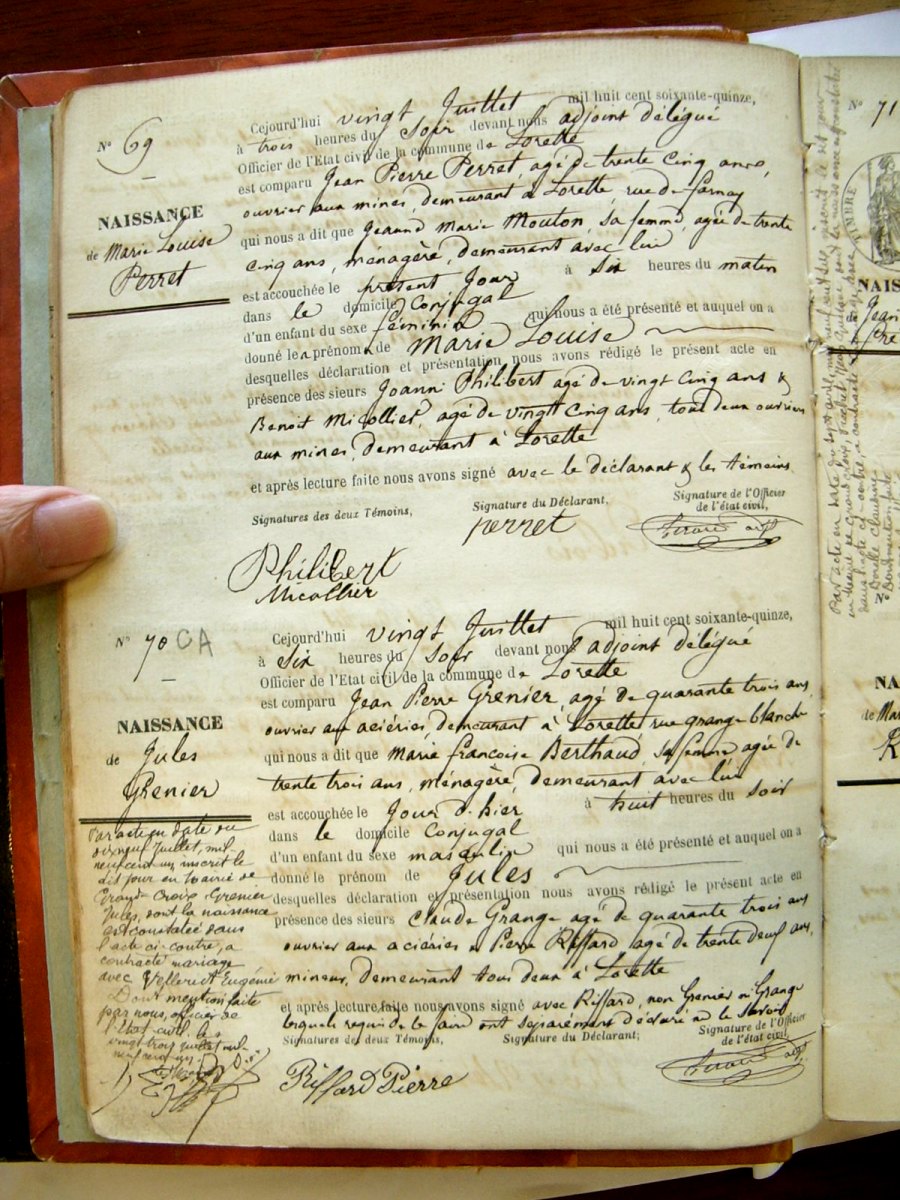 N° 69
NAISSANCE
de Marie Louise
Perret
Cejourd'hui vingt Juillet mil huit cent soixante-quinze,
à trois heures du Soir devant nous adjoint délégué
Officier de l'Etat civil de la commune de Lorette
est comparu Jean Pierre Perret, agé de trente cinq ans,
ouvrier aux mines, demeurant à Lorette, rue de Farnay
qui nous a dit que Marie Mouton, sa femme, agée de trente
cinq ans, ménagère, demeurant avec lui
est accouchée le présent Jour à six heures du matin
dans le domicile Conjugal
d'un enfant du sexe féminin qui nous a été présenté et auquel on a
donné les prénoms de Marie Louise
desquelles déclaration et présentation nous avons rédigé le présent acte en
présence des sieurs Joanni Philibert agé de vingt cinq ans &
Benoit Micollier, agé de vingt cinq ans, tous deux ouvriers
aux mines, demeurant à Lorette
et après lecture faite nous avons signé avec le déclarant & les témoins
Signatures des deux Témoins,
Signature du Déclarant,
Signature de l'Officier
de l'état civil,
Perret
Philibert
Micollier
N° 70 CA
NAISSANCE
de Jules
Grenier
Cejourd'hui vingt Juillet mil huit cent soixante-quinze,
à six heures du Soir devant nous adjoint délégué
Officier de l'Etat civil de la commune de Lorette
est comparu Jean Pierre Grenier, agé de quarante trois ans
ouvrier aux aciéries, demeurant à Lorette rue grange blanche
qui nous a dit que Marie françoise Berthaud, sa femme agée de
trente trois ans, ménagère, demeurant avec lui
est accouchée le Jour d'hier à huit heures du soir
dans le domicile Conjugal
d'un enfant du sexe masculin qui nous a été présenté et auquel on a
donné le prénom de Jules
desquelles déclaration et présentation nous avons rédigé le présent acte en
présence des sieurs Claude Grange agé de quarante trois ans
ouvrier aux aciéries & Pierre Riffard agé de trente deux ans,
mineur, demeurant tous deux à Lorette
et après lecture faite nous avons signé avec Riffard, non Grenier ni Grange
lesquels requis de le faire ont séparément déclaré ne le savoir
Signatures des deux Témoins,
Signature du Déclarant,
Signature de l'Officier
de l'état civil,
Riffard Pierre
Par acte en date du
dix neuf Juillet, mil
neuf cent un inscrit le
dit jour en mairie de
Grand-Croix Grenier
Jules, dont la naissance
est constatée dans
l'acte ci-contre, a
contracté mariage
avec Vellerut Eugénie
Dont mention faite
par nous, officier de
l'Etat-civil, le
vingt trois juillet mil
neuf cent un
N° 71
TIMBRE